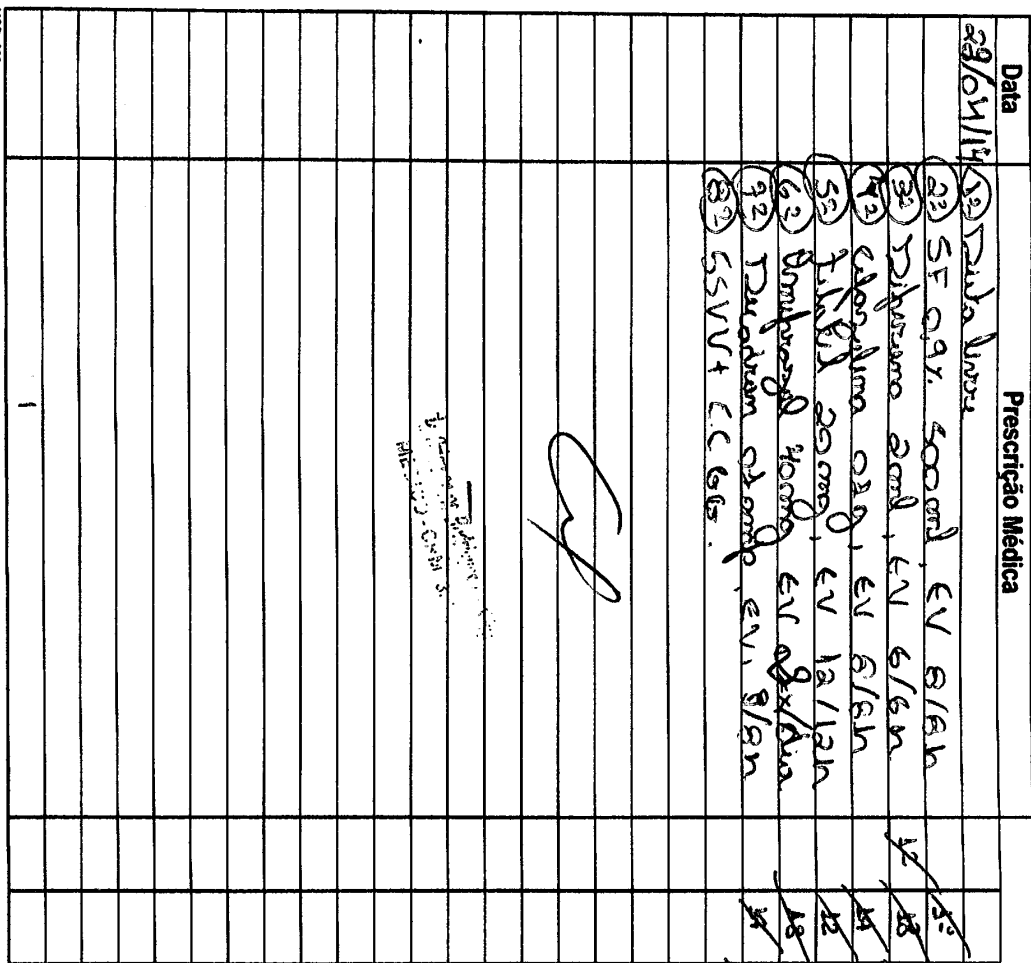 Data Prescrição Médica
29/04/14 1º Dieta livre
2º SF 0,9% 500ml, EV 8/8h 1º
3º Dipirona 2ml, EV 6/6h 12 18
4º 02g, EV 8/8h 14
5º Tilatil 20mg, EV 12/12h 22
6º Omeprazol 40mg EV x/dia 18
7º Decadron 01 amp, EV, 8/8h 14
8º SSVV + CCGG.
1